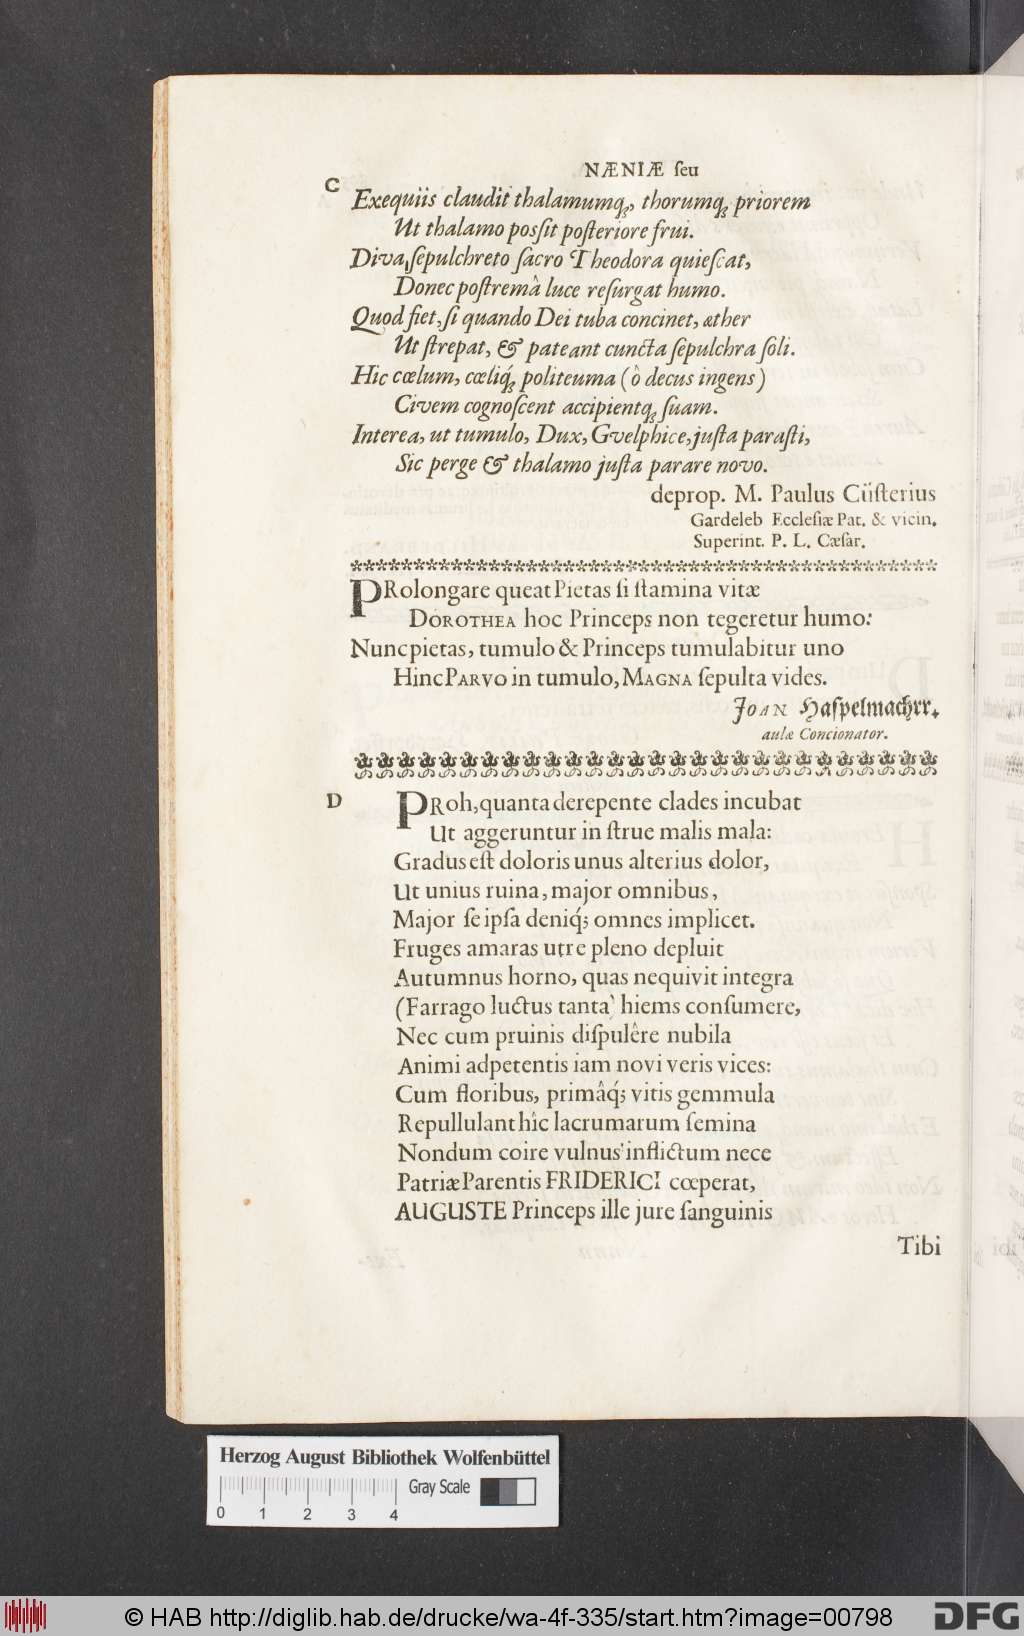 NÆNIÆ ſeu
C
Exequiis claudit thalamumq́;, thorumq́; priorem
Ut thalamo posſit poſteriore frui.
Diva, ſepulchreto ſacro Theodora quieſcat,
Donec poſtremâ luce reſurgat humo.
Quod fiet, ſi quando Dei tuba concinet, æther
Ut ſtrepat, & pateant cuncta ſepulchra ſoli.
Hic cœlum, cœliq́; politeuma (ô decus ingens)
Civem cognoſcent accipientq́; ſuam.
Interea, ut tumulo, Dux, Gvelphice, juſta paraſti,
Sic perge & thalamo juſta parare novo.
deprop. M. Paulus Cüſterius
Gardeleb Eccleſiæ Pat. & vicin.
Superint. P. L. Cæſar.
PRolongare queat Pietas ſi ſtamina vitæ
DOROTHEA hoc Princeps non tegeretur humo:
Nunc pietas, tumulo & Princeps tumulabitur uno
Hinc PARVO in tumulo, MAGNA ſepulta vides.
JOAN Haſpelmachrr.
aulæ Concionator.
D
PRoh, quanta derepente clades incubat
Ut aggeruntur in ſtrue malis mala:
Gradus eſt doloris unus alterius dolor,
Ut unius ruina, major omnibus,
Major ſe ipſa deniq́; omnes implicet.
Fruges amaras utre pleno depluit
Autumnus horno, quas nequivit integra
(Farrago luctus tanta) hiems conſumere,
Nec cum pruinis diſpulêre nubila
Animi adpetentis iam novi veris vices:
Cum floribus, primâq́; vitis gemmula
Repullulant hîc lacrumarum ſemina
Nondum coire vulnus inflictum nece
Patriæ Parentis FRIDERICI cœperat,
AUGUSTE Princeps ille jure ſanguinis
Tibi
Herzog August Bibliothek Wolfenbüttel
Gray Scale
0 1 2 3 4
© HAB http://diglib.hab.de/drucke/wa-4f-335/start.htm?image=00798
DFG